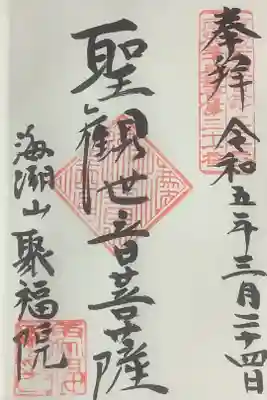 奉拜 令和五年三月二十四日
聖觀世音菩薩
海潮山 聚福院